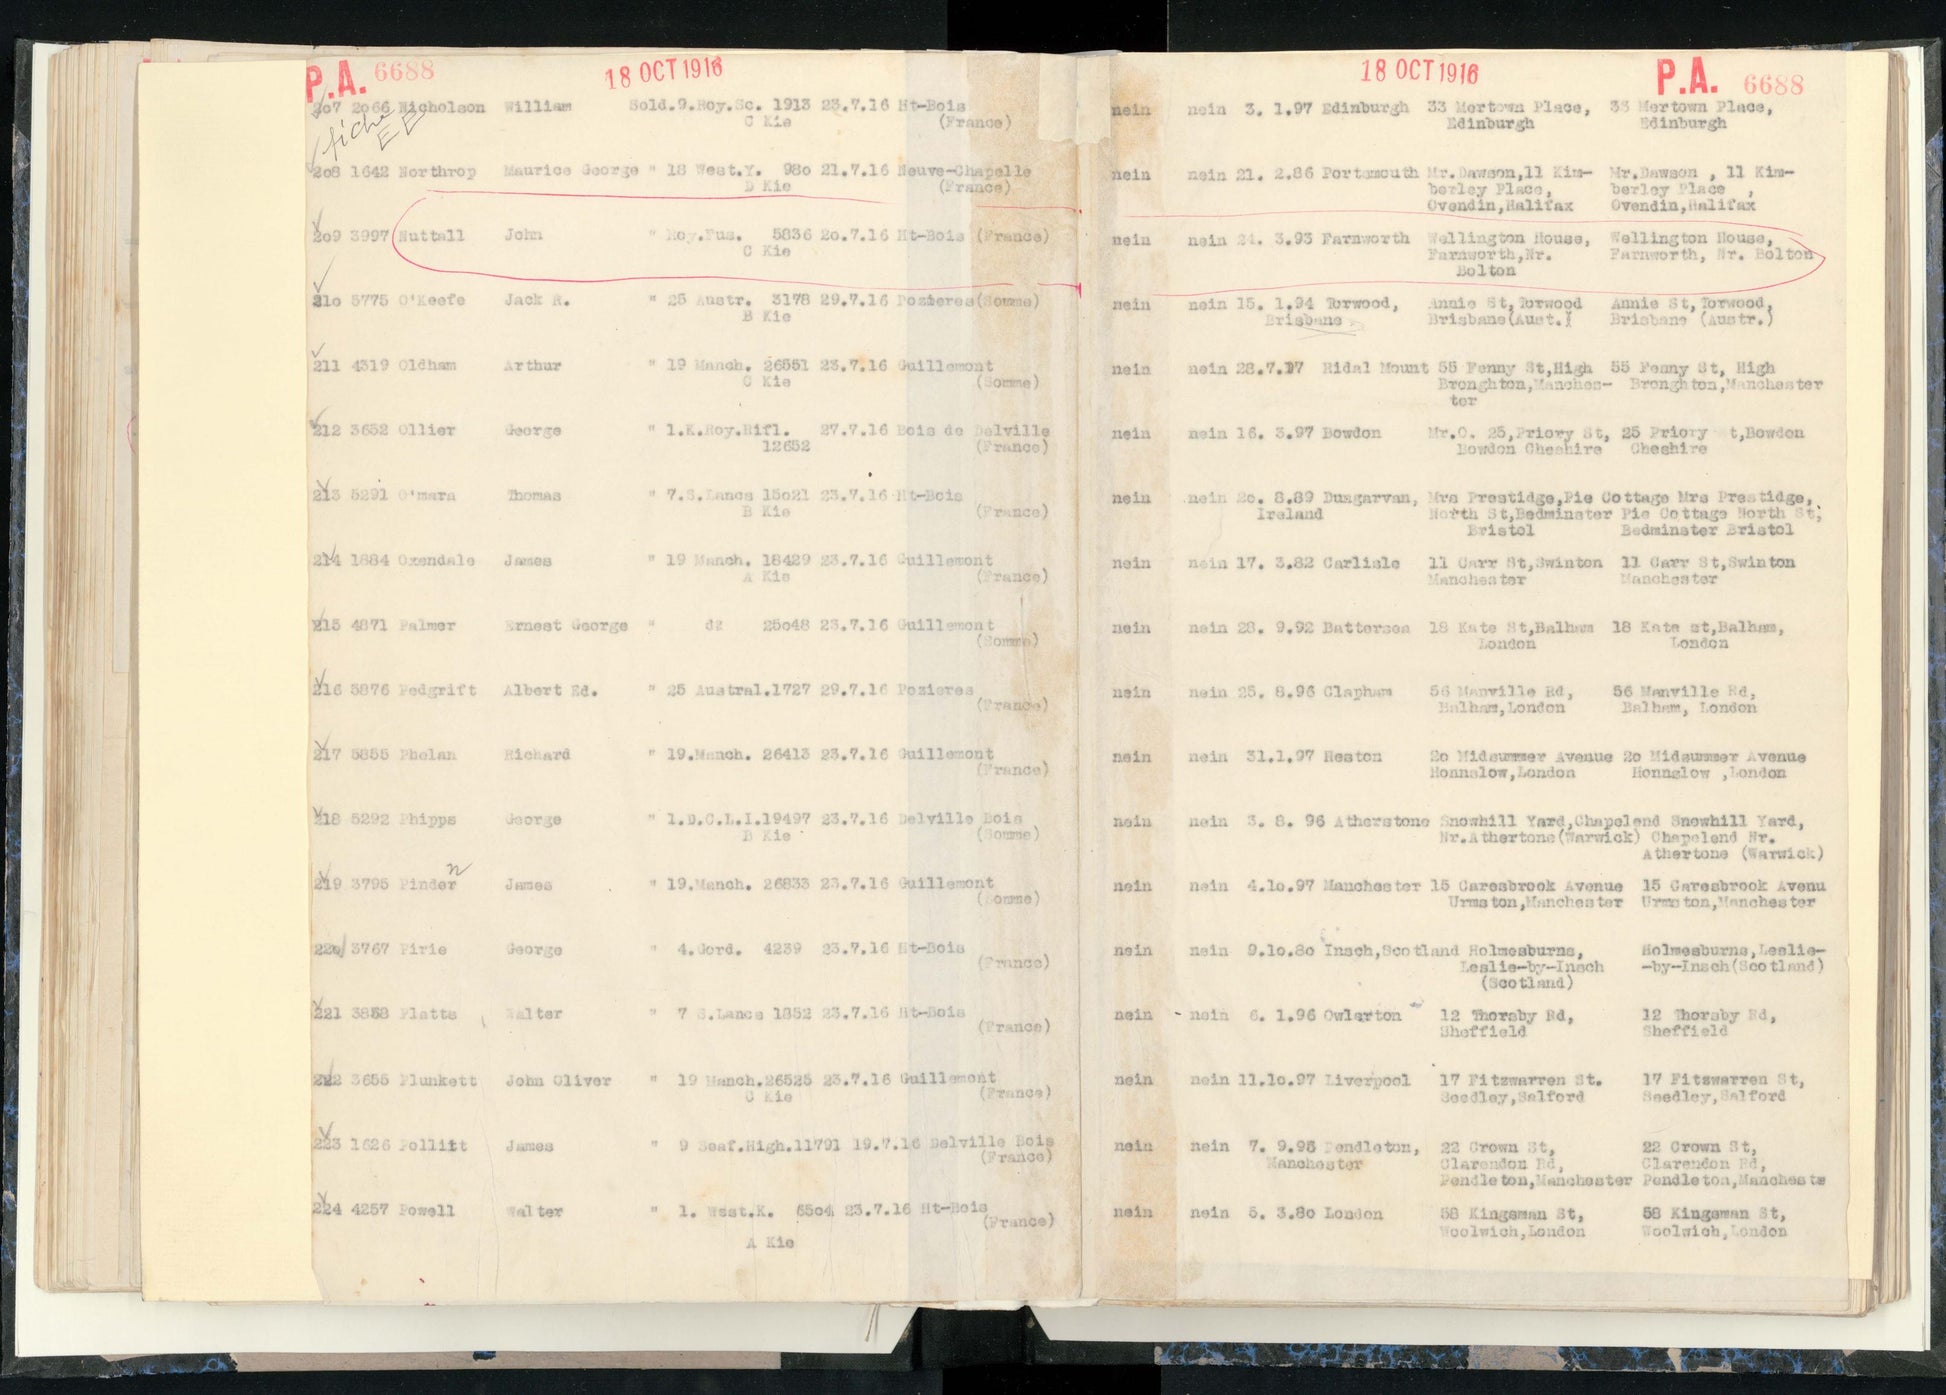 P.A. 6688 18 OCT 1916 18 OCT 1916 P.A. 6688
207 2066 Nicholson William Sold.9.Roy.Sc. 1913 23.7.16 Ht-Bois nein nein 3. 1.97 Edinburgh 33 Mertown Place, 33 Mertown Place,
C Kie (France) Edinburgh Edinburgh
fiche
EB
208 1642 Northrop Maurice George " 18 West.Y. 980 21.7.16 Neuve-Chapelle nein nein 21. 2.86 Portsmouth Mr.Dawson,11 Kim- Mr.Dawson , 11 Kim-
D Kie (France) berley Place, berley Place ,
Ovendin,Halifax Ovendin,Halifax
209 3997 Nuttall John " Roy.Fus. 5836 20.7.16 Ht-Bois (France) nein nein 24. 3.93 Farnworth Wellington House, Wellington House,
C Kie Farnworth,Nr. Farnworth, Nr. Bolton
Bolton
210 5775 O'Keefe Jack R. " 25 Austr. 3178 29.7.16 Pozieres(Somme) nein nein 15. 1.94 Torwood, Annie St,Torwood Annie St,Torwood,
B Kie Brisbane Brisbane(Aust.) Brisbane (Austr.)
211 4319 Oldham Arthur " 19 Manch. 26551 23.7.16 Guillemont nein nein 28.7.17 Ridal Mount 55 Fenny St,High 55 Fenny St, High
C Kie (Somme) Bronghton,Manches- Bronghton,Manchester
ter
212 3652 Ollier George " 1.K.Roy.Rifl. 27.7.16 Bois de Delville nein nein 16. 3.97 Bowdon Mr.O. 25,Priory St, 25 Priory t,Bowdon
12652 (France) Bowdon Cheshire Cheshire
213 5291 O'mara Thomas " 7.S.Lancs 15021 23.7.16 Ht-Bois nein nein 20. 8.89 Dungarvan, Mrs Prestidge,Pie Cottage Mrs Prestidge,
B Kie (France) Ireland North St,Bedminster Pie Cottage North St,
Bristol Bedminster Bristol
214 1884 Oxendale James " 19 Manch. 18429 23.7.16 Guillemont nein nein 17. 3.82 Carlisle 11 Carr St,Swinton 11 Carr St,Swinton
A Kie (France) Manchester Manchester
215 4871 Palmer Ernest George " do 25048 23.7.16 Guillemont nein nein 28. 9.92 Battersea 18 Kate St,Balham 18 Kate st,Balham,
(Somme) London London
216 5876 Pedgrift Albert Ed. " 25 Austral.1727 29.7.16 Pozieres nein nein 25. 8.96 Clapham 56 Manville Rd, 56 Manville Rd,
(France) Balham,London Balham, London
217 5855 Phelan Richard " 19.Manch. 26413 23.7.16 Guillemont nein nein 31.1.97 Heston 20 Midsummer Avenue 20 Midsummer Avenue
(France) Honnslow,London Honnslow ,London
218 5292 Phipps George " 1.D.C.L.I.19497 23.7.16 Delville Bois nein nein 3. 8. 96 Atherstone Snowhill Yard,Chapelend Snowhill Yard,
B Kie (Somme) Nr.Athertone(Warwick) Chapelend Nr.
Athertone (Warwick)
219 3795 Pinder n James " 19.Manch. 26833 23.7.16 Guillemont nein nein 4.10.97 Manchester 15 Caresbrook Avenue 15 Caresbrook Avenu
(Somme) Urmston,Manchester Urmston,Manchester
220 3767 Pirie George " 4.Gord. 4239 23.7.16 Ht-Bois nein nein 9.10.80 Insch,Scotland Holmesburns, Holmesburns,Leslie-
(France) Leslie-by-Insch -by-Insch(Scotland)
(Scotland)
221 3858 Platts Walter " 7 S.Lancs 1852 23.7.16 Ht-Bois nein nein 6. 1.96 Owlerton 12 Thorsby Rd, 12 Thorsby Rd,
(France) Sheffield Sheffield
222 3655 Plunkett John Oliver " 19 Manch.26525 23.7.16 Guillemont nein nein 11.10.97 Liverpool 17 Fitzwarren St. 17 Fitzwarren St,
C Kie (France) Seedley,Salford Seedley,Salford
223 1626 Pollitt James " 9 Seaf.High.11791 19.7.16 Delville Bois nein nein 7. 9.95 Pendleton, 22 Crown St, 22 Crown St,
(France) Manchester Clarendon Rd, Clarendon Rd,
Pendleton,Manchester Pendleton,Mancheste
224 4257 Powell Walter " 1. West.K. 6504 23.7.16 Ht-Bois nein nein 5. 3.80 London 58 Kingsman St, 58 Kingsman St,
(France) Woolwich,London Woolwich,London
A Kie